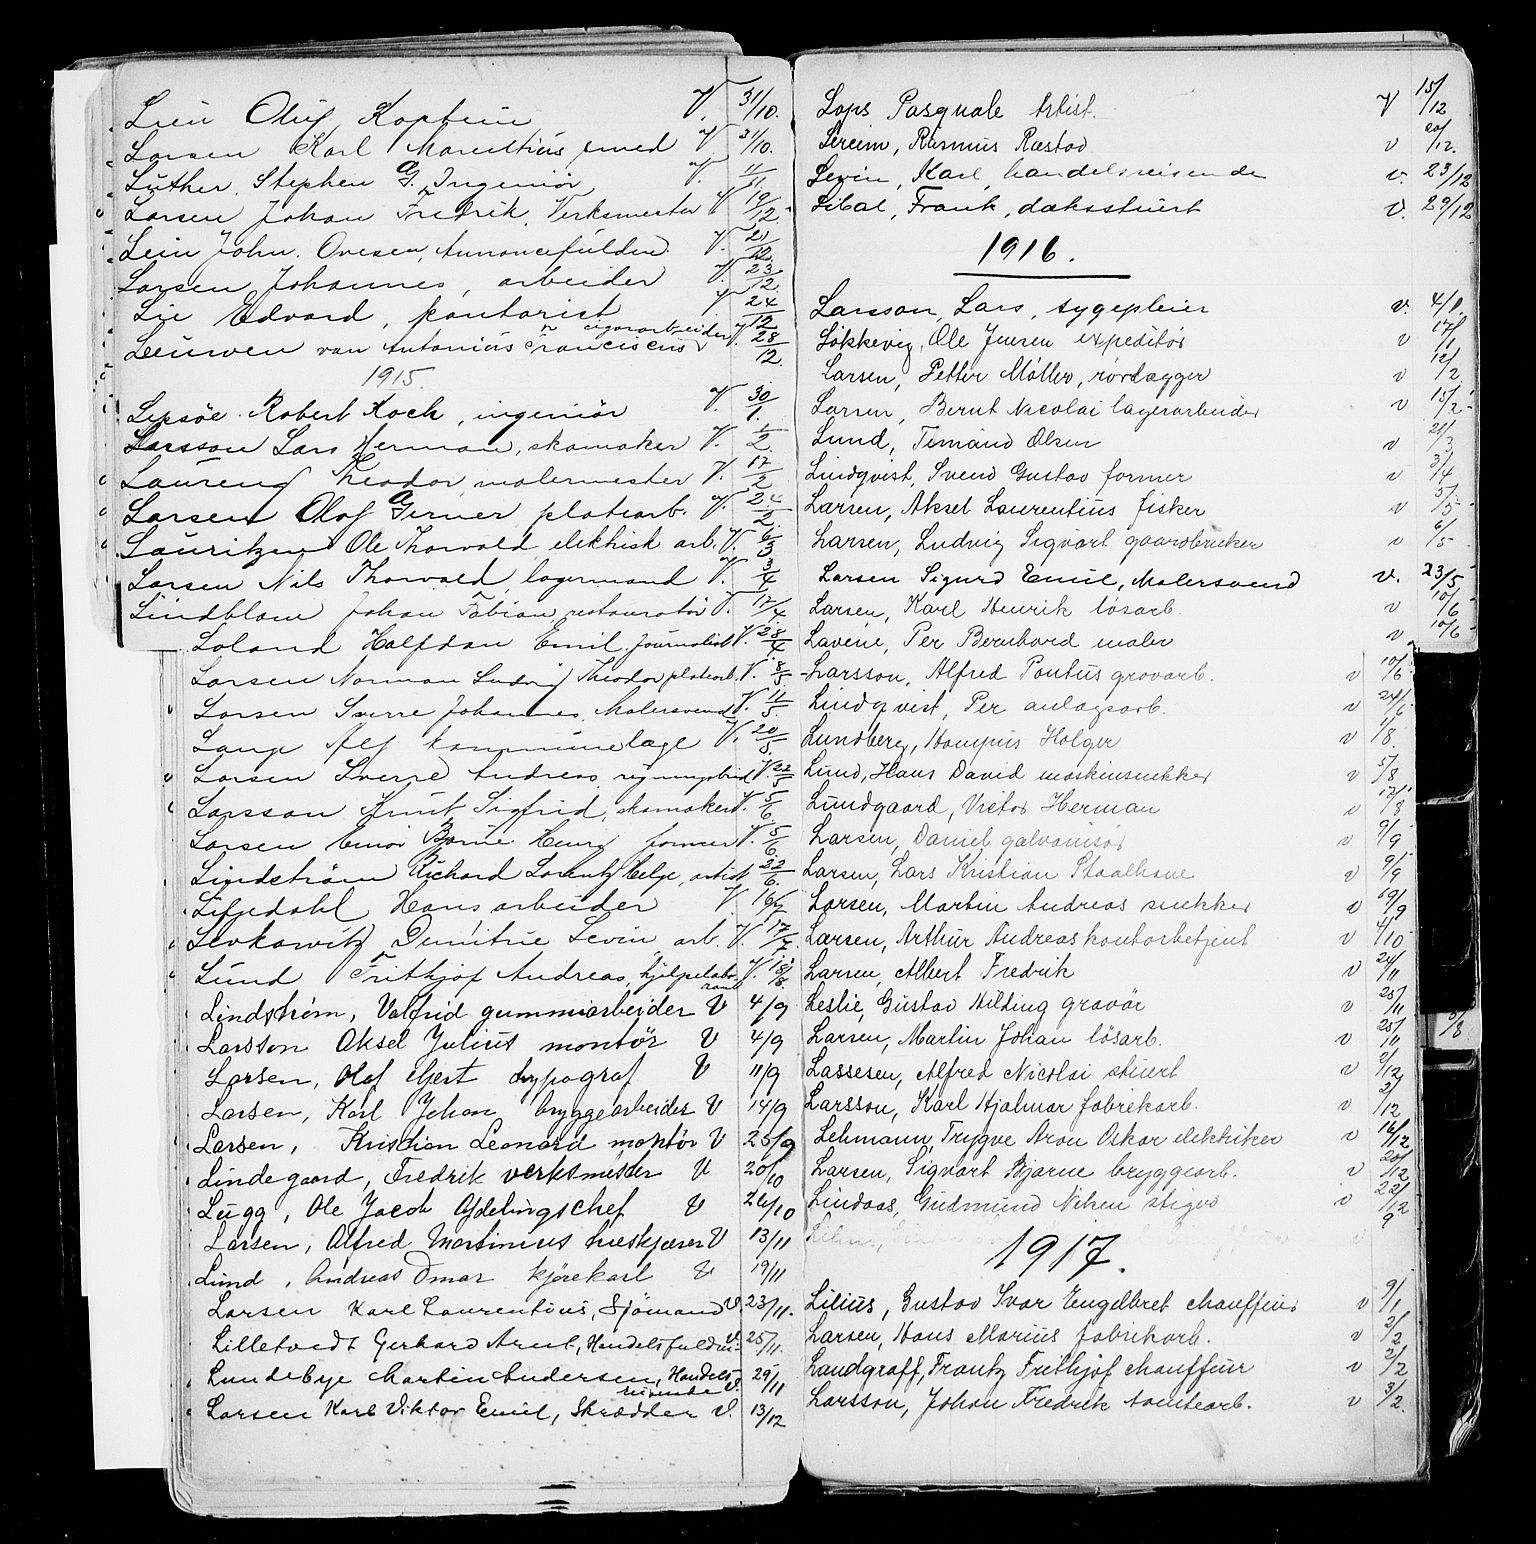 Lein Oluf Kaptein V. 31/10.
Larsen Karl Marentius smed V 31/10.
Luther Stephen G. Ingeniör V. 11/11.
Larsen Johan Fredrik, Verksmester V 19/12
Lein John. Ovesen, Annoncefuldm V. 21/12.
Larsen Johannes, arbeider V 23/12.
Lie Edvard, kontorist V 24/12
Leuwen van Antonius Franciscus cigararbeider V. 28/12.
1915.
Lepsöe Robert Koch, ingeniör V. 30/1.
Larsson Lars Herman, skomaker V. 1/2.
Laureng Theodor, malermester V. 17/2
Larsen Olaf Gerner platearb. V. 24/2.
Lauritzen Ole Thorvald elektrisk arb. V. 6/3
Larsen Nils Thorvald, lagermand V. 3/4
Lindblom Johan Fabian restauratör V. 17/4.
Loland Halfdan Emil. Journalist V. 28/4.
Larsen Norman Ludvig Theodor platearb. V. 8/5
Larsen Sverre Johannes, Malersvend V. 11/5.
Lange Alf kommunelæge V. 20/5
Larsen Sverre Andreas, V. 22/5
Larsson Knut Sigfrid, skomaker V. 5/6.
Larsen Einar Bjarne Henry former V. 5/6.
Lindström Richard Lorentz Helge, artist V 22/6.
Lifjedahl Hans, arbeider V 16/7
Levkowitz Dumitrie Levin arb. V. 17/7.
Lund Frithjof Andreas, hjelpelaborant V. 18/8.
Lindstrøm, Valfrid gummiarbeider V 4/9
Larsson Aksel Julius montör V 4/9
Larsen, Olaf Gjert typograf V 11/9
Larsen, Karl Johan bryggearbeider V 14/9
Larsen, Kristian Leonard montör V 25/9
Lindegaard, Fredrik verksmester V 20/10
Lugg, Ole Jacob Afdelingschef V 26/10
Larsen, Alfred Martinius træskjærer V 13/11
Lund, Andreas Omar kjørekarl V 19/11
Larsen Karl Laurentius, Sjömand V. 23/11.
Lilletvedt Gerhard Arent, Handelsfuldm. V. 25/11.
Lundebye Martin Andersen, Handelsreisende V. 29/11
Larsen Karl Viktor Emil, Skrædder V. 13/12
Lops Pasquale Artist. V 15/12
Lereim, Rasmus Rastad v 20/12.
Levin, Karl, handelsreisende v. 23/12
Libal, Frank, dæksstuert v. 29/12
1916.
Larsson, Lars, sygepleier v. 4/1.
Løkkevig, Ole Jensen expeditör v 17/1
Larsen, Petter Möller, rørlægger v 12/2
Larsen, Bernt Nicolai lagerarbeider v 15/2
Lund, Temand Olsen v 21/3
Lindqvist, Svend Gustav former v 3/4
Larsen, Aksel Laurentius fisker v 5/5
Larsen, Ludvig Sigvart gaardbruker v 6/5
Larsen Sigurd Emil, Malersvend v. 23/5
Larsen, Karl Henrik løsarb. v 10/6
Lavene, Per Bernhard maler v 10/6
Larsson, Alfred Pontus grovarb. v 10/6
Lindqvist, Per anlægsarb. v 24/6
Lundberg, Hampus Holger v 1/8
Lund, Hans David maskinsnekker v 5/8
Lundgaard, Victor Herman v 17/8
Larsen, Daniel galvanisör v 9/9
Larsen, Lars Kristian Staalhane v 9/9
Larsen, Martin Andreas snekker v 19/9
Larsen, Arthur Andreas kontorbetjent v 4/10
Larsen, Albert Fredrik v 24/11
Leslie, Gustav Hilding gravör v 25/11
Larsen, Martin Johan løsarb. v 25/11
Lassesen, Alfred Nicolai stuert v 2/12
Larsson, Karl Hjalmar fabrikarb. v 2/12
Lehmann, Trygve Aron Oskar elektriker v 16/12
Larsen, Sigvart Bjarne bryggearb. v 20/12
Lindaas, Gudmund Nilsen stiger v 22/12
1917.
Lilius, Gustav Ivar Engelbret chauffeur v 9/1
Larsen, Hans Marius fabrikarb. v 2/2
Landgraff, Frantz Frithjof chauffeur v 2/2
Larsson, Johan Fredrik tomtearb. v 3/2.
5/8